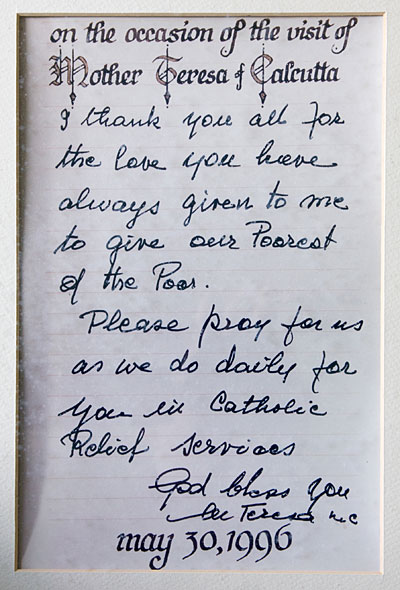 on the occasion of the visit of
Mother Teresa of Calcutta
I thank you all for
the love you have
always given to me
to give our Poorest
of the Poor.
Please pray for us
as we do daily for
you in Catholic
Relief services
God bless you
M Teresa mc
may 30, 1996